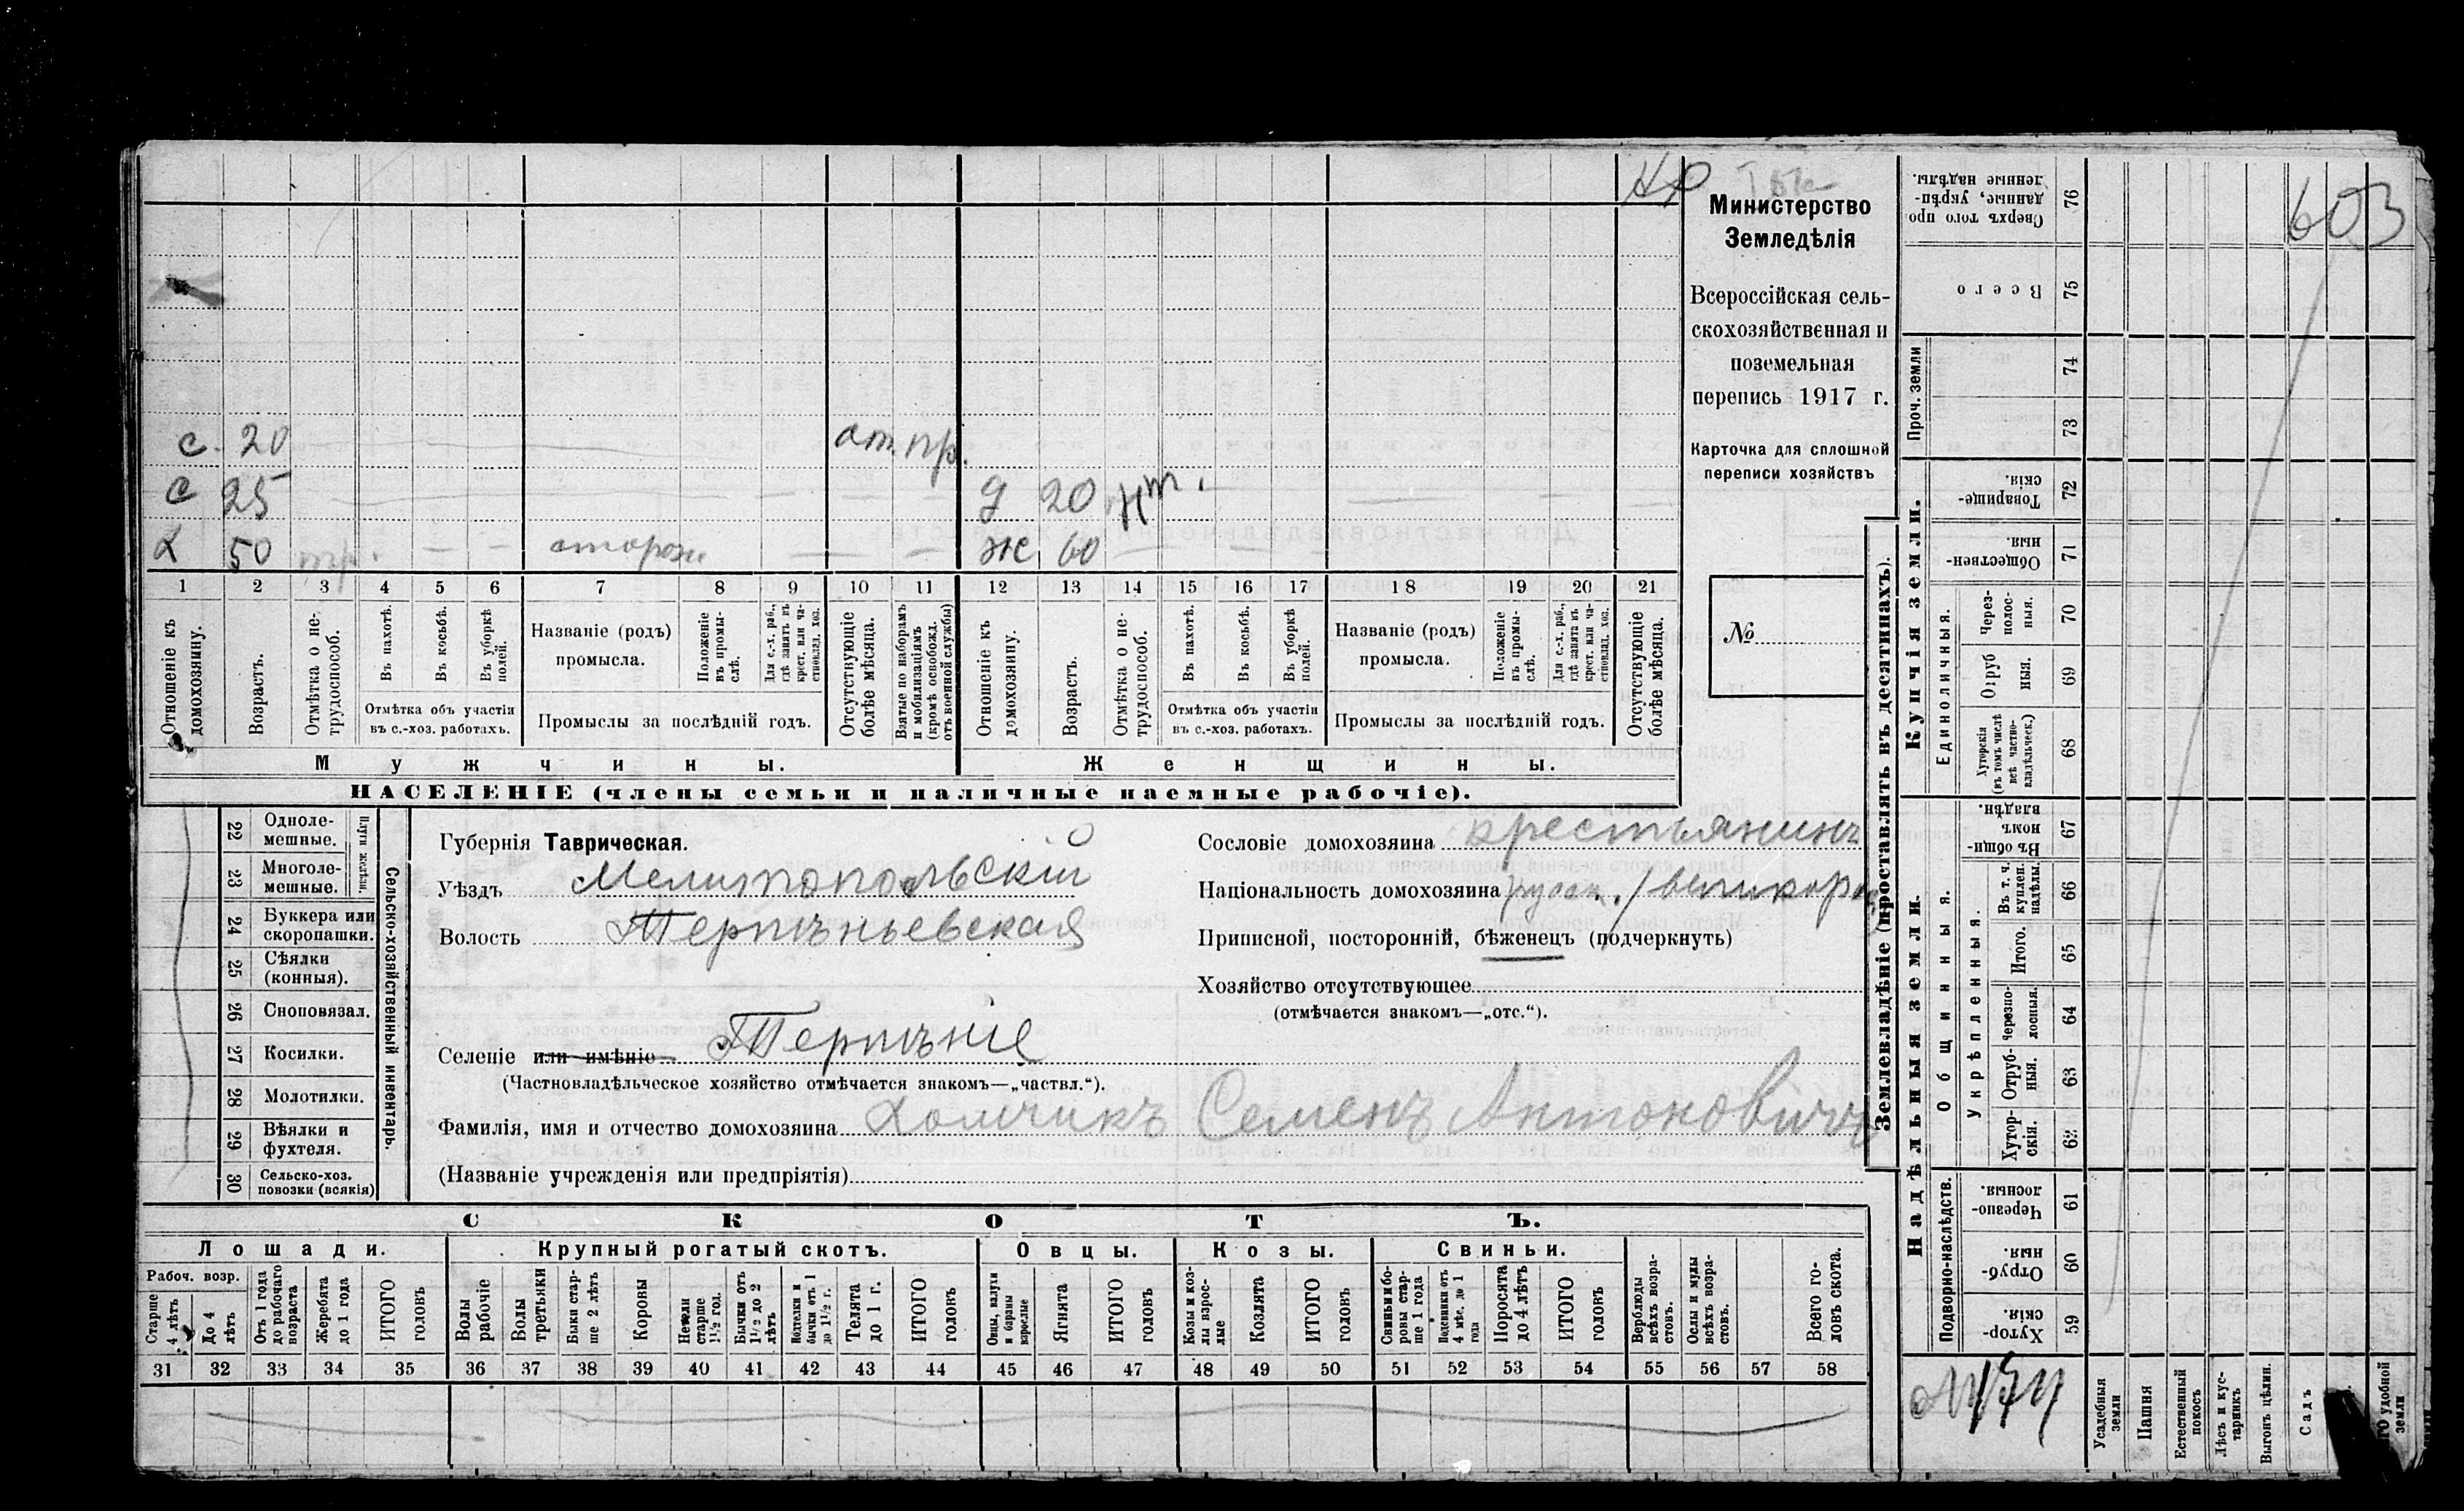 603
Министерство
Земледѣлія
Всероссійская сель-
скохозяйственная и
поземельная
перепись 1917 г.
Карточка для сплошной
переписи хозяйствъ
№
с. 20 от. пр.
с 25 д 20 нт.
х 50 сторож ж 60
1 2 3 4 5 6 7 8 9 10 11 12 13 14 15 16 17 18 19 20 21
Отношеніе къ домохозяину.
Возрастъ.
Отмѣтка о не-трудоспособ.
Въ пахотѣ.
Въ косьбѣ.
Въ уборкѣ полей.
Отмѣтка объ участіи
въ с.-хоз. работахъ.
Названіе (родъ)
промысла.
Положеніе въ промы-слѣ.
Для с.-х. раб., гдѣ занятъ въ крест. или ча-стновлад. хоз.
Промыслы за послѣдній годъ.
Отсутствующіе болѣе мѣсяца.
Взятые по наборамъ и мобилизаціямъ (кромѣ освобожд. отъ военной службы)
Отношеніе къ домохозяину.
Возрастъ.
Отмѣтка о не-трудоспособ.
Въ пахотѣ.
Въ косьбѣ.
Въ уборкѣ полей.
Отмѣтка объ участіи
въ с.-хоз. работахъ.
Названіе (родъ)
промысла.
Положеніе въ промы-слѣ.
Для с.-х. раб., гдѣ занята въ крест. или ча-стновлад. хоз.
Промыслы за послѣдній годъ.
Отсутствующіе болѣе мѣсяца.
Мужчины.
Женщины.
НАСЕЛЕНІЕ (члены семьи и наличные наемные рабочіе).
22 Одноле-мешные.
23 Многоле-мешные.
Плуги желѣзн.
24 Буккера или скоропашки.
25 Сѣялки (конныя).
26 Сноповязал.
27 Косилки.
28 Молотилки.
29 Вѣялки и фухтеля.
30 Сельско-хоз. повозки (всякія)
Сельско-хозяйственный инвентарь.
Губернія Таврическая.
Уѣздъ Мелитопольскій
Волость Терпѣньевская
Селеніе или имѣніе Терпѣніе
(Частновладѣльческое хозяйство отмѣчается знакомъ—„частвл.“).
Фамилія, имя и отчество домохозяина Хомчикъ Семенъ Антоновичъ
(Названіе учрежденія или предпріятія)
Сословіе домохозяина крестьянинъ
Національность домохозяина русск. / великорос
Приписной, посторонній, бѣженецъ (подчеркнуть)
Хозяйство отсутствующее
(отмѣчается знакомъ—„отс.“).
СКОТЪ.
Лошади.
Крупный рогатый скотъ.
Овцы.
Козы.
Свиньи.
Рабоч. возр.
Старше 4 лѣтъ
До 4 лѣтъ
Отъ 1 года до рабочаго возраста
Жеребята до 1 года
ИТОГО головъ
Волы рабочіе
Волы третьяки
Быки стар-ше 2 лѣтъ
Коровы
Нетели старше 1½ год.
Бычки отъ 1½ до 2 лѣтъ
Нетелки и бычки отъ 1 до 1½ г.
Телята до 1 г.
ИТОГО головъ
Овцы, валухи и бараны взрослые
Ягнята
ИТОГО головъ
Козы и коз-лы взрос-лые
Козлята
ИТОГО головъ
Свиньи и бо-ровы стар-ше 1 года
Подсвинки отъ 4 мѣс. до 1 года
Поросята до 4 лѣтъ
ИТОГО головъ
Верблюды всѣхъ возра-стовъ.
Ослы и мулы всѣхъ возра-стовъ.
Всего го-ловъ скота.
31 32 33 34 35 36 37 38 39 40 41 42 43 44 45 46 47 48 49 50 51 52 53 54 55 56 57 58
Землевладѣніе (проставлять въ десятинахъ).
Надѣльныя земли.
Купчія земли.
Проч. земли
Подворно-наслѣдств.
Общинныя.
Укрѣпленныя.
Единоличныя.
76 Сверхъ того про-данные, укрѣп-ленные надѣлы.
75 Всего
74
73
72 Товарище-скія.
71 Обществен-ныя.
70 Через-полос-ныя.
69 Отруб-ныя.
68 Хуторскія (въ томъ числѣ всѣ частно-владѣльческ.)
67 Въ общи-номъ владѣн.
66 Въ т. ч. куплен. надѣлы.
65 Итого.
64 Черезпо-лосныя.
63 Отруб-ныя.
62 Хутор-скія.
61 Черезпо-лосныя.
60 Отруб-ныя.
59 Хутор-скія.
Усадебныя земли
Пашня
Естественный покосъ
Лѣсъ и кус-тарникъ
Выгонъ цѣлин.
Садъ
удобной земли